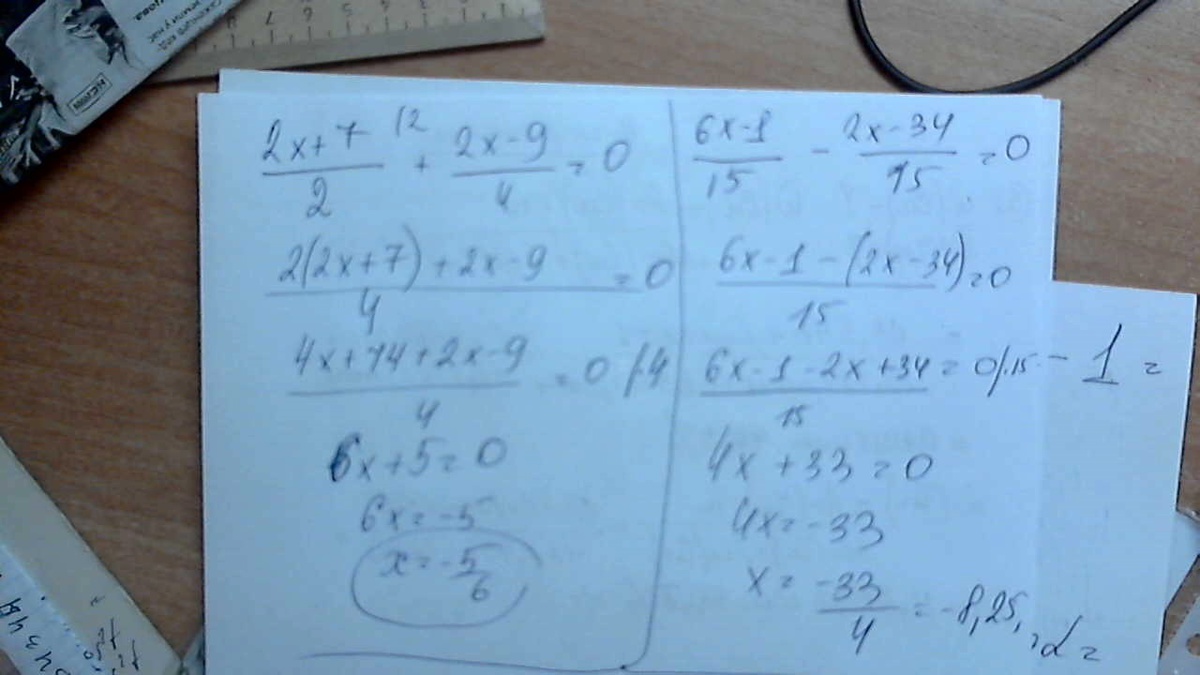 (2x+7)/2 ^(2 + (2x-9)/4 = 0
(2(2x+7)+2x-9)/4 = 0
(4x+14+2x-9)/4 = 0 /·4
6x+5=0
6x=-5
x=-5/6
(6x-1)/15 - (2x-34)/15 = 0
(6x-1-(2x-34))/15 = 0
(6x-1-2x+34)/15 = 0/·15
4x+33=0
4x=-33
x=-33/4 = -8,25
- 1 =